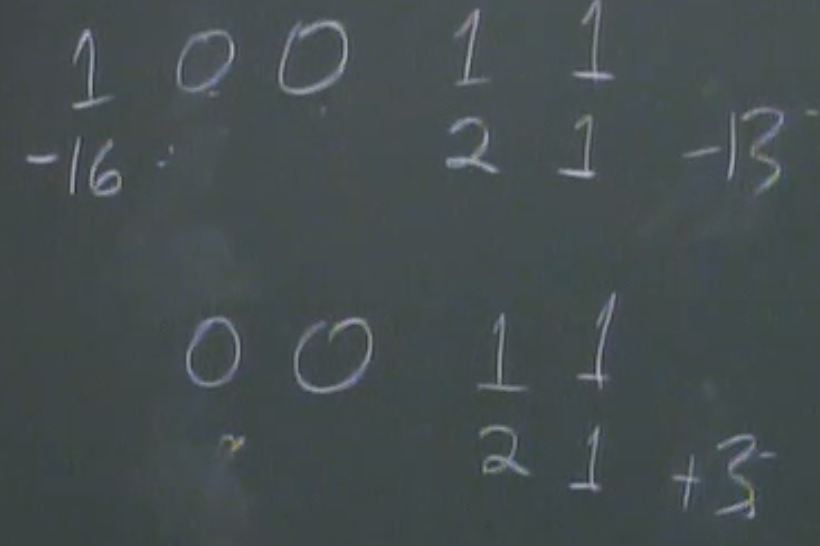 1 0 0 1 1
-16 2 1 -13
0 0 1 1
2 1 +3